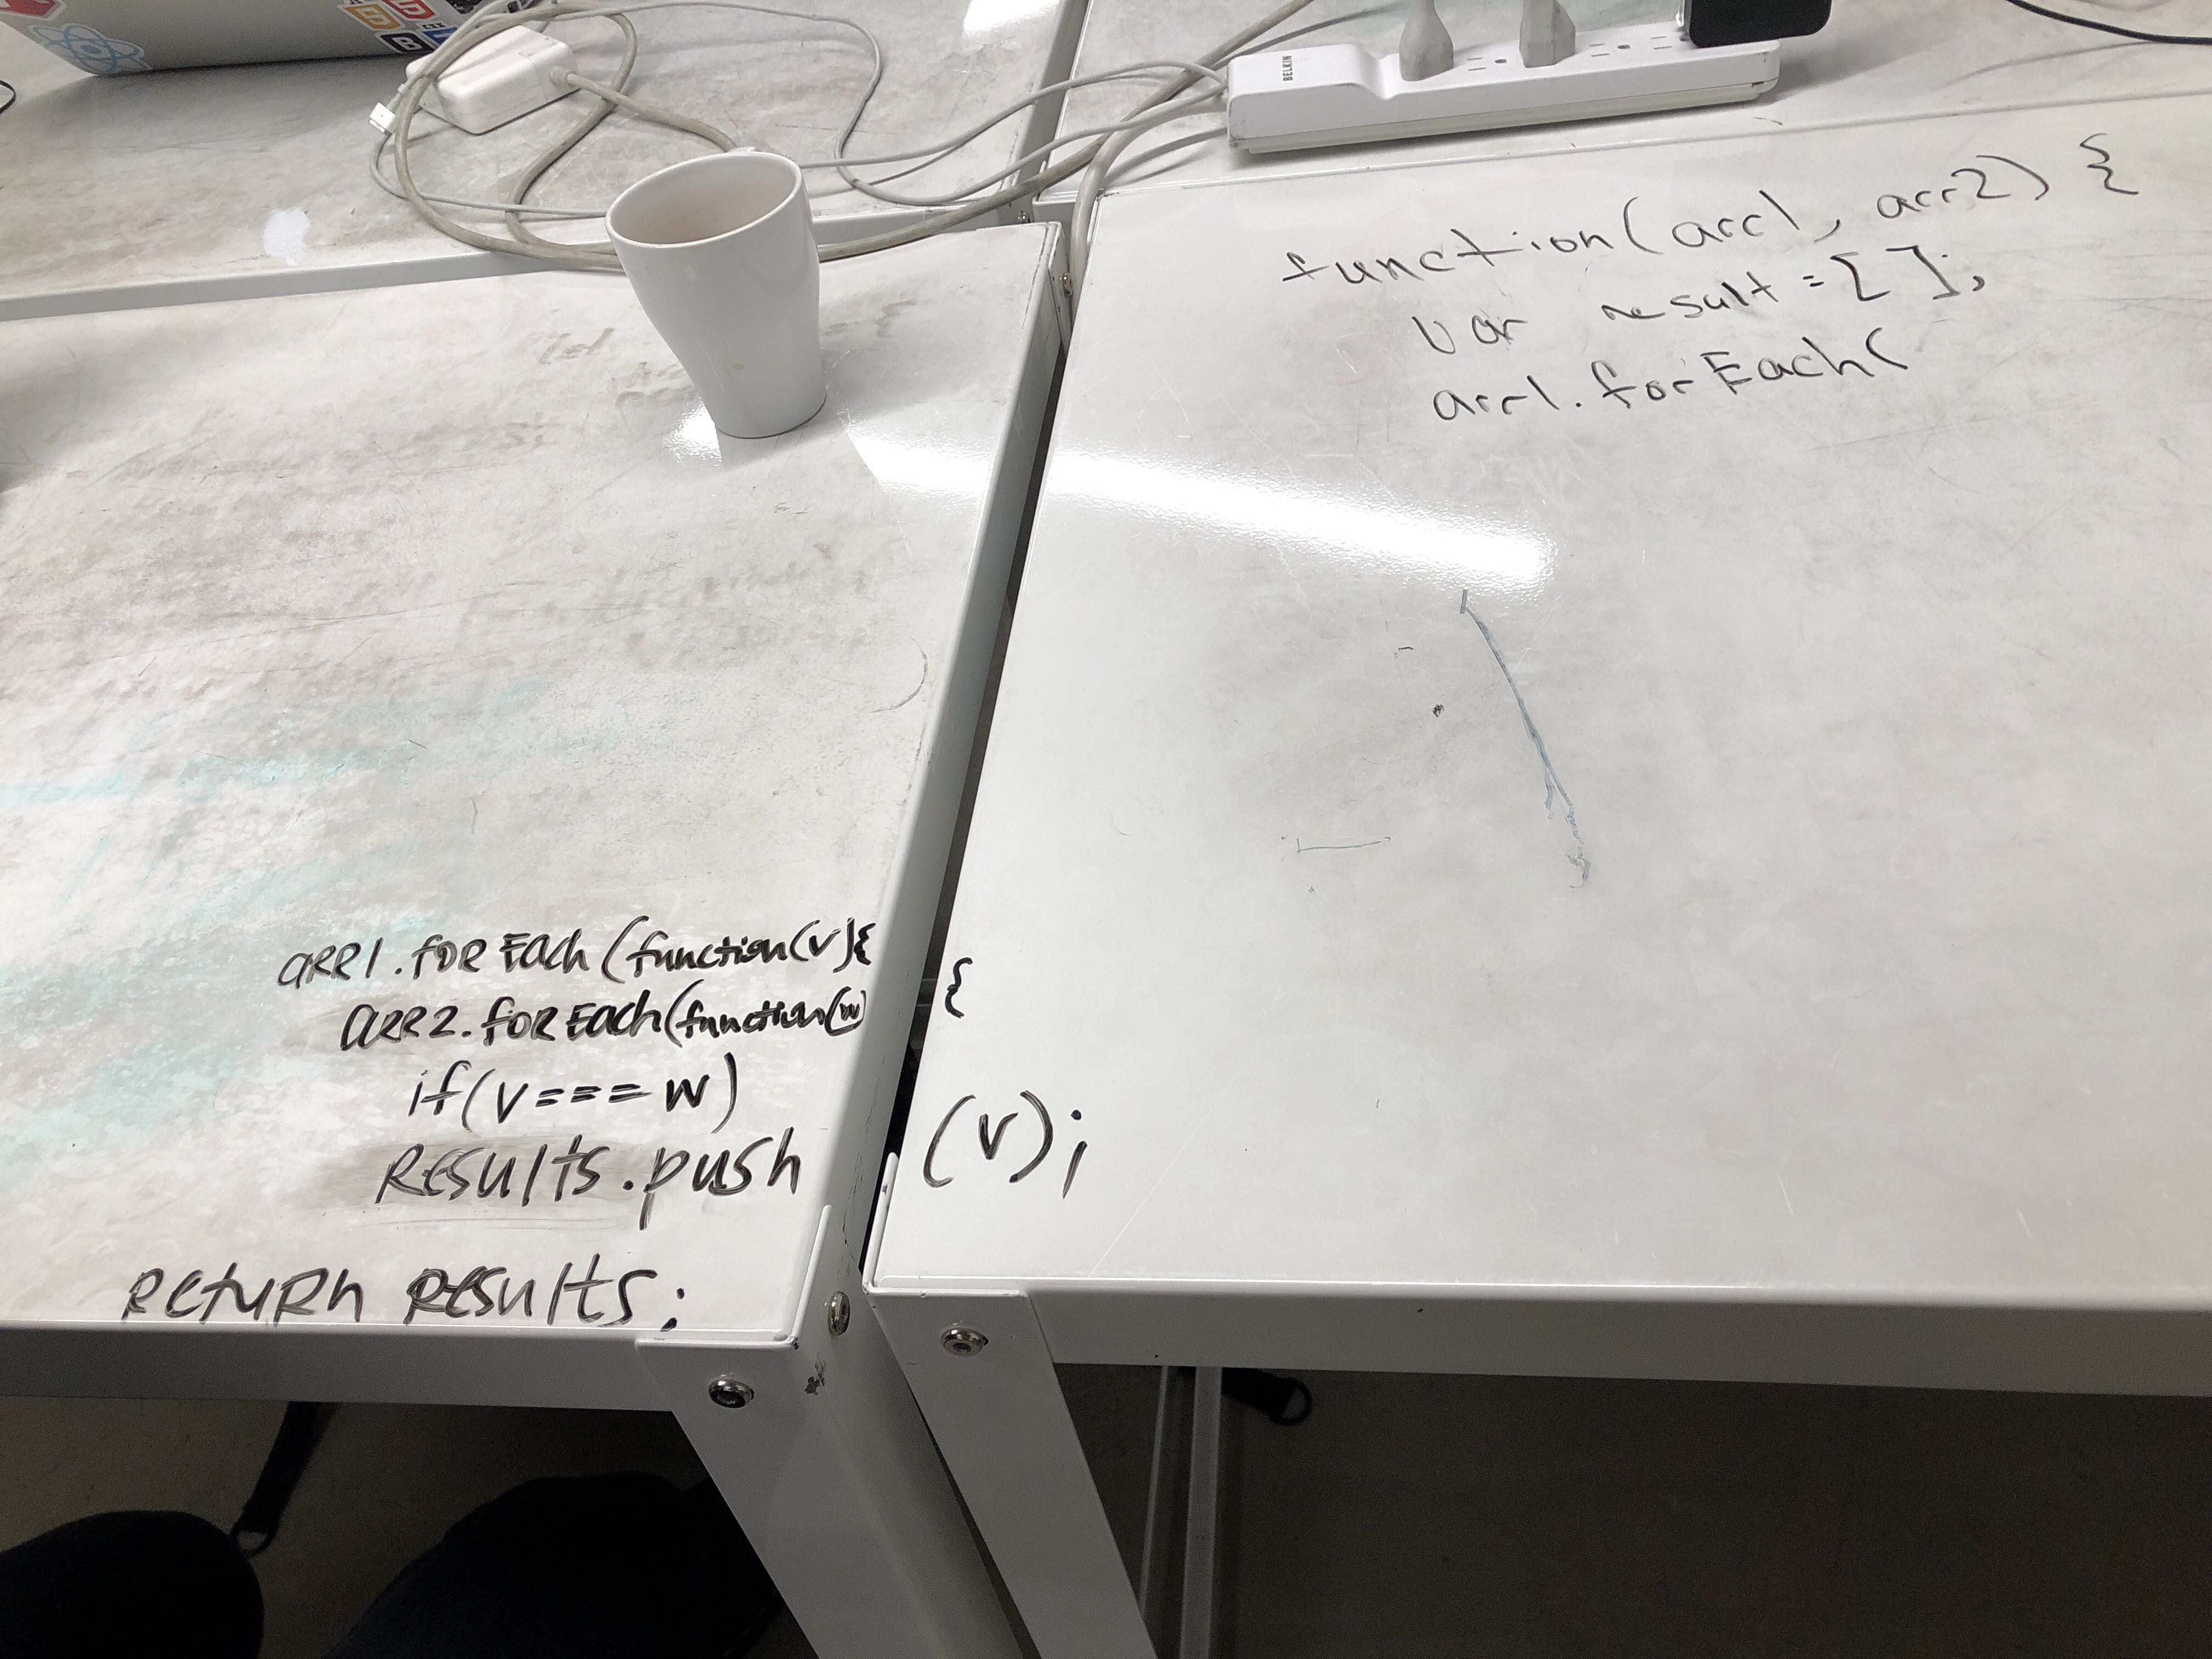 BELKIN
function(arr1, arr2) {
var result = [ ];
arr1.forEach(
arr1.forEach(function(v){
arr2.forEach(function(w) {
if(v===w)
results.push (v);
return results;